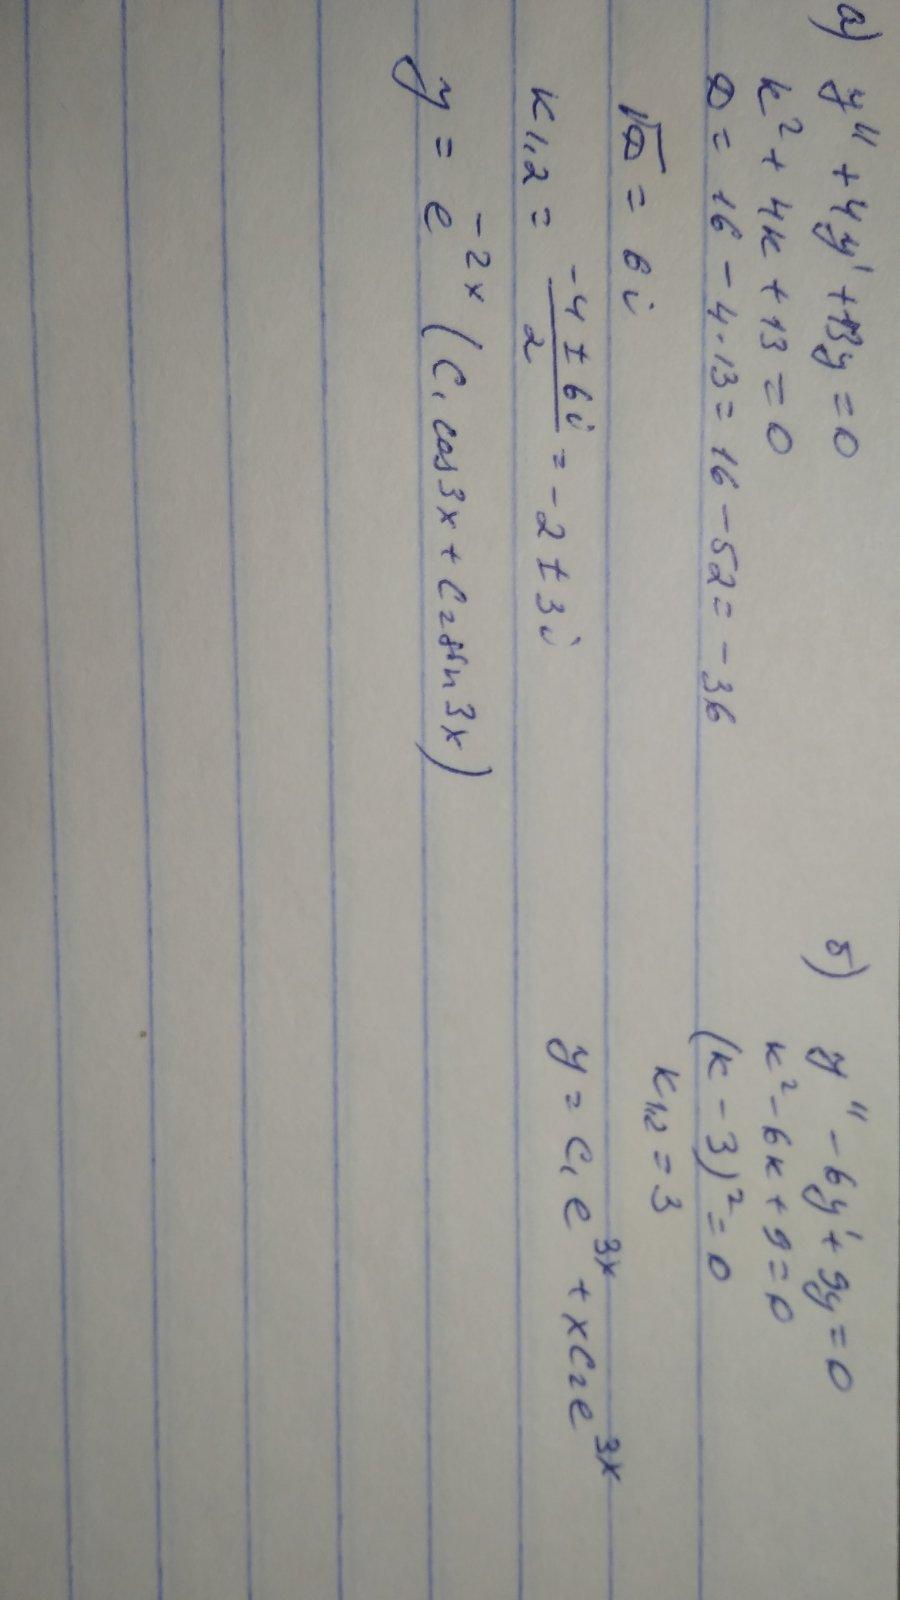 а) y'' + 4y' + 13y = 0
k² + 4k + 13 = 0
D = 16 - 4·13 = 16 - 52 = -36
√D = 6i
k₁,₂ = (-4 ± 6i)/2 = -2 ± 3i
y = e^(-2x) (C₁ cos3x + C₂ sin3x)
б) y'' - 6y' + 9y = 0
k² - 6k + 9 = 0
(k - 3)² = 0
k₁,₂ = 3
y = C₁e^(3x) + xC₂e^(3x)